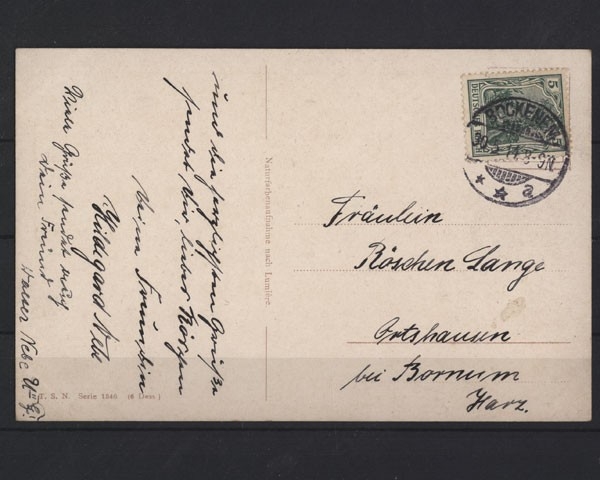 und die herzlichsten Grüße
sendet dir, liebes Röschen
deine Freundin
Hildegard
Viele Grüße sendet auch
Dein Freund
Naturfarbenaufnahme nach Lumière
T. S. N. Serie 1340 (6 Dess.)
DEUTSCHES REICH
5
BOCKENEM
a
Fräulein
Röschen Lange
Ortshausen
bei Bornum
Harz.